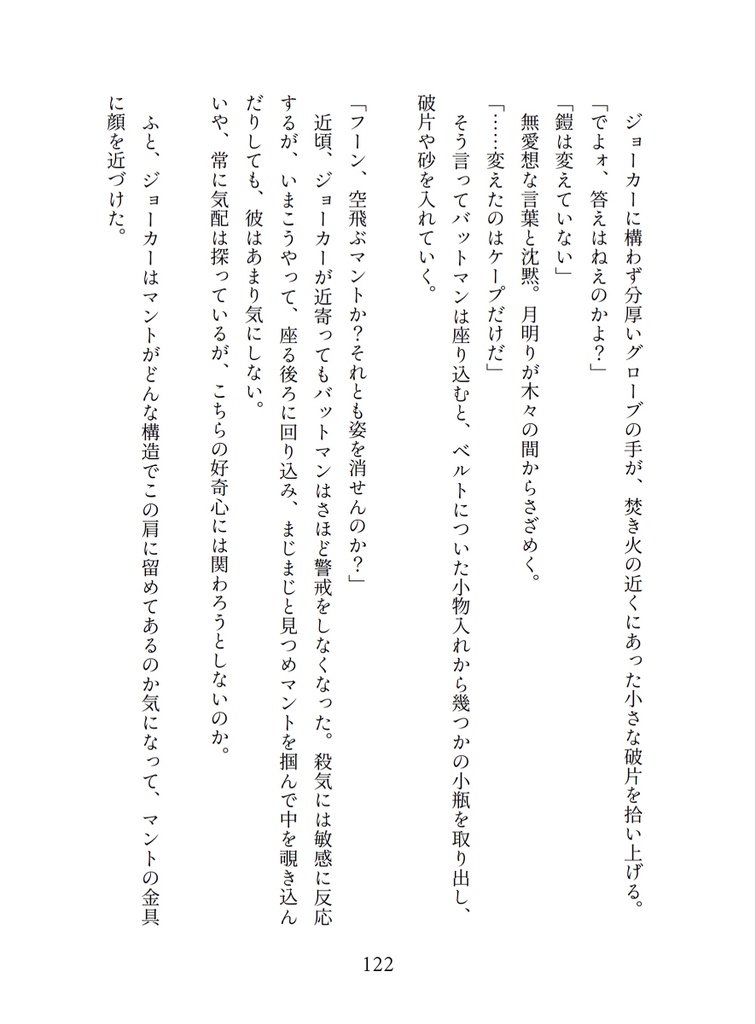 ジョーカーに構わず分厚いグローブの手が、焚き火の近くにあった小さな破片を拾い上げる。
「でよォ、答えはねえのかよ？」
「鎧は変えていない」
無愛想な言葉と沈黙。月明りが木々の間からさざめく。
「……変えたのはケープだけだ」
そう言ってバットマンは座り込むと、ベルトについた小物入れから幾つかの小瓶を取り出し、
破片や砂を入れていく。
「フーン、空飛ぶマントか？それとも姿を消せんのか？」
近頃、ジョーカーが近寄ってもバットマンはさほど警戒をしなくなった。殺気には敏感に反応
するが、いまこうやって、座る後ろに回り込み、まじまじと見つめマントを掴んで中を覗き込ん
だりしても、彼はあまり気にしない。
いや、常に気配は探っているが、こちらの好奇心には関わろうとしないのか。
ふと、ジョーカーはマントがどんな構造でこの肩に留めてあるのか気になって、マントの金具
に顔を近づけた。
122